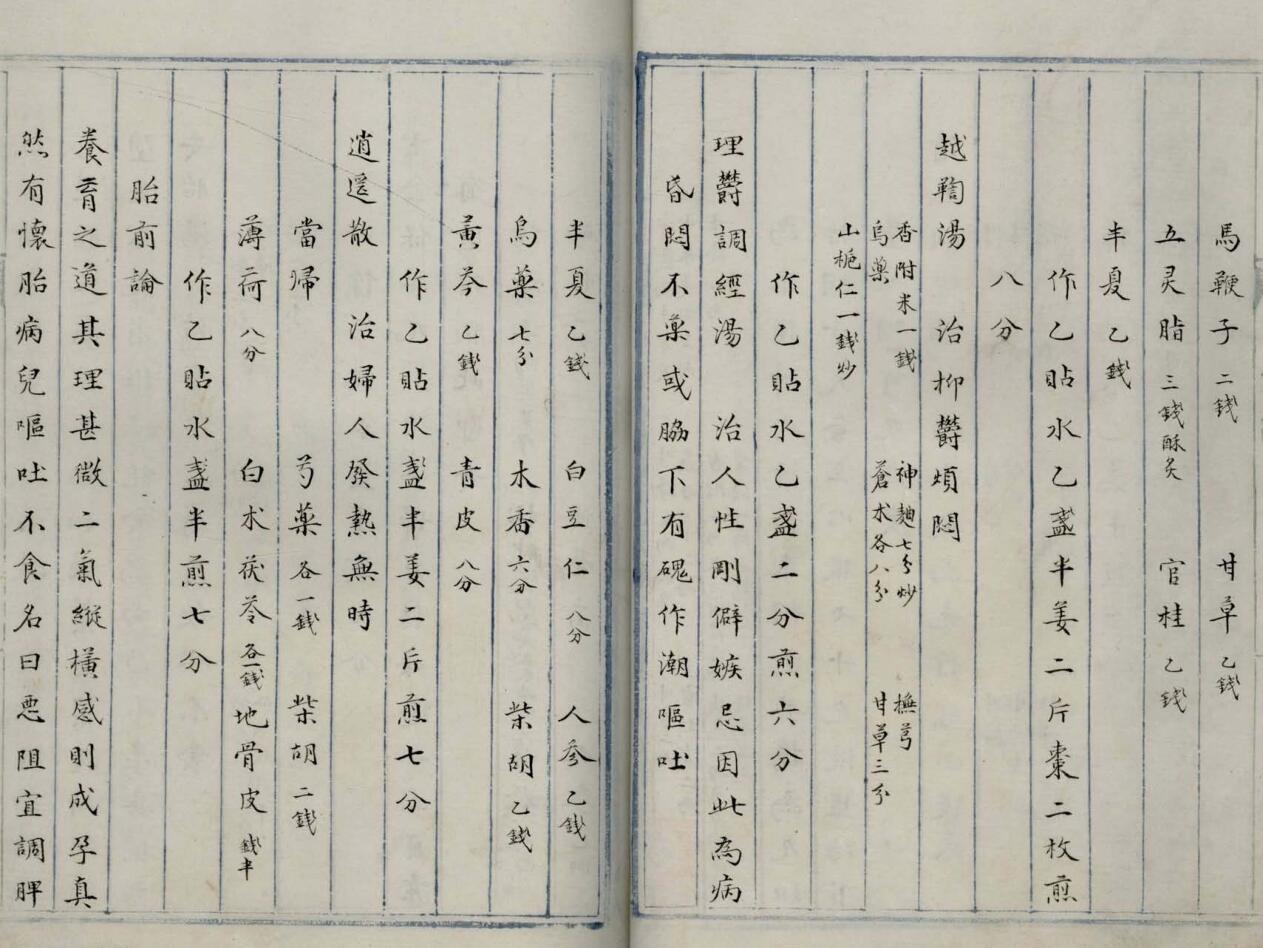 馬鞭子二錢 甘草乙錢
五灵脂三錢酥炙 官桂乙錢
半夏乙錢
作乙貼水乙盞半姜二斤棗二枚煎
八分
越鞫湯 治抑欝煩悶
香附米一錢 神麯七分炒 撫芎
烏藥 蒼朮各八分 甘草三分
山梔仁一錢炒
作乙貼水乙盞二分煎六分
理欝調經湯 治人性剛僻嫉忌因此為病
昏悶不藥或脇下有磈作潮嘔吐
半夏乙錢 白豆仁八分 人參乙錢
烏藥七分 木香六分 柴胡乙錢
黃芩乙錢 青皮八分
作乙貼水盞半姜二斤煎七分
逍遥散 治婦人發熱無時
當歸 芍藥各一錢 柴胡二錢
薄荷八分 白朮茯苓各一錢地骨皮錢半
作乙貼水盞半煎七分
胎前論
養育之道其理甚微二氣縱橫感則成孕真
然有懷胎病兒嘔吐不食名曰悪阻宜調脾